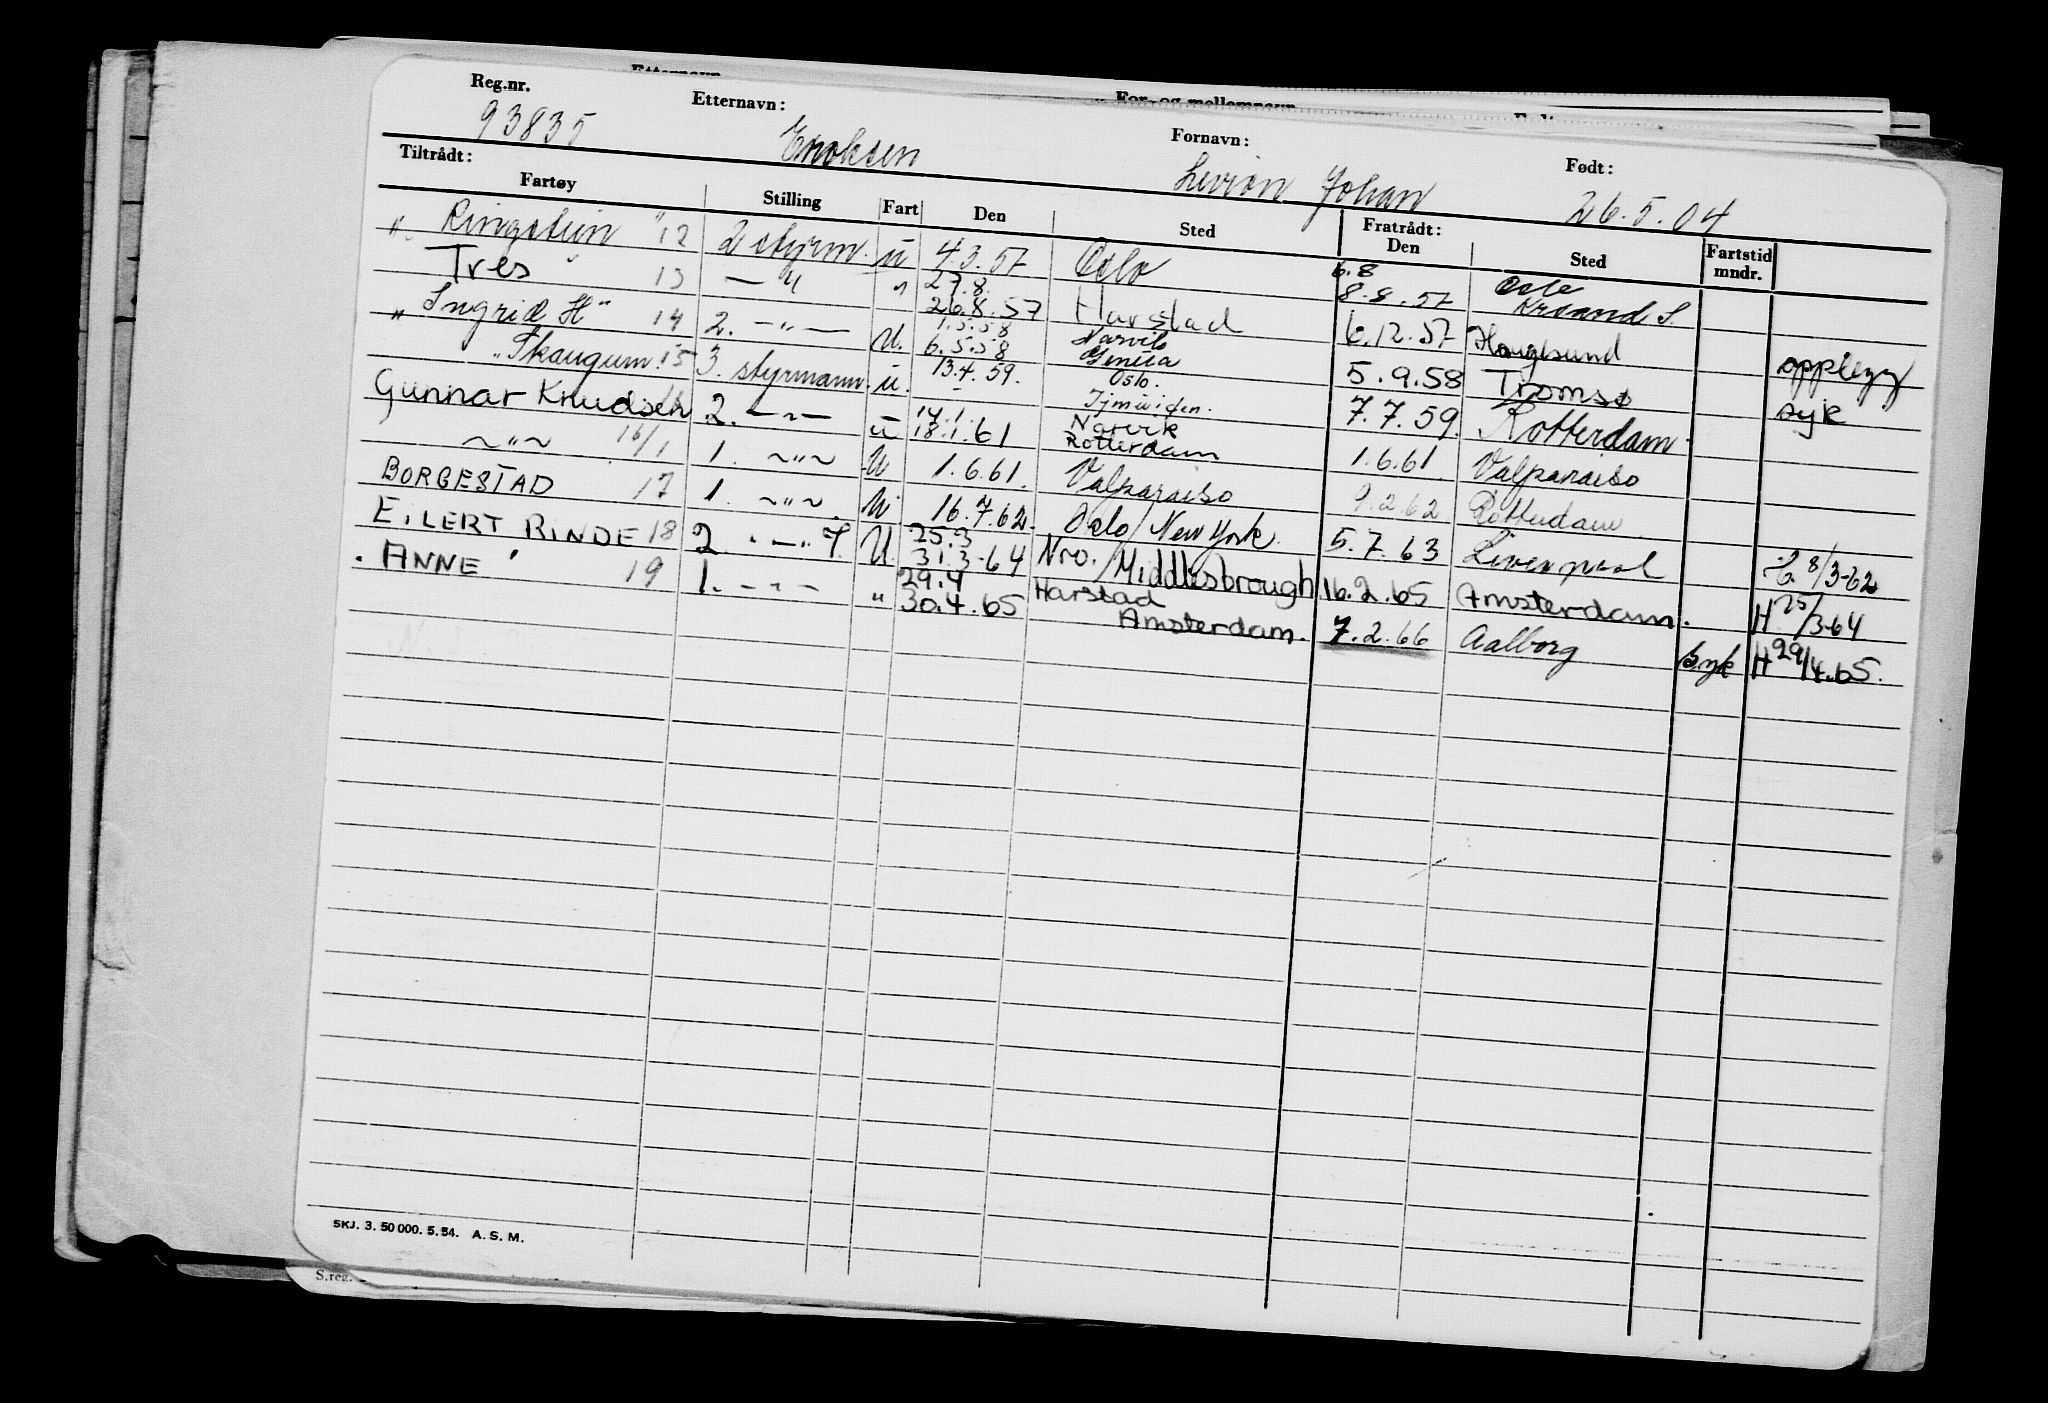 Etternavn
For- og mellomnavn
Reg.nr. Etternavn: Fornavn: Født:
93835 Enoksen Levion Johan 26.5.04
Tiltrådt: Fratrådt:
Fartøy Stilling Fart Den Sted Den Sted Fartstid mndr.
" Ringstein " 12 2 styrm. u 4.3.57 Oslo 6.8 8.8.57 Oslo Krsand S.
Tres 13 — " " 27.8. 26.8.57 Harstad 6.12.57 Haugesund opplegg
" Ingrid H " 14 2. — " — U. 1.5.58 6.5.58 Narvik Genua 5.9.58 Tromsø syk
" Skaugum 15 3. styrmann. u. 13.4.59. - Oslo. Ijmuiden. 7.7.59. Rotterdam
Gunnar Knudsen 16 2. — " — u 14.1. 18.1.61 Narvik Rotterdam 1.6.61. Valparaiso
~ " ~ 16/1 1. ~ " ~ U 1.6.61. Valparaiso 9.2.62 Rotterdam
BORGESTAD 17 1. ~ " ~. U 16.7.62. Oslo / New York. 5.7.63 Liverpool 8/3-62
EILERT RINDE 18 2. - " - U 25.3 31.3-64 Nrv. / Middlesbrough 16.2.65 Amsterdam. H 25/3-64
" ANNE " 19 1. - " - " 29.4 30.4.65 Harstad Amsterdam. 7.2.66 Aalborg syk H 29/4.65.
SKJ. 3. 50 000. 5. 54. A. S. M.
S.reg.